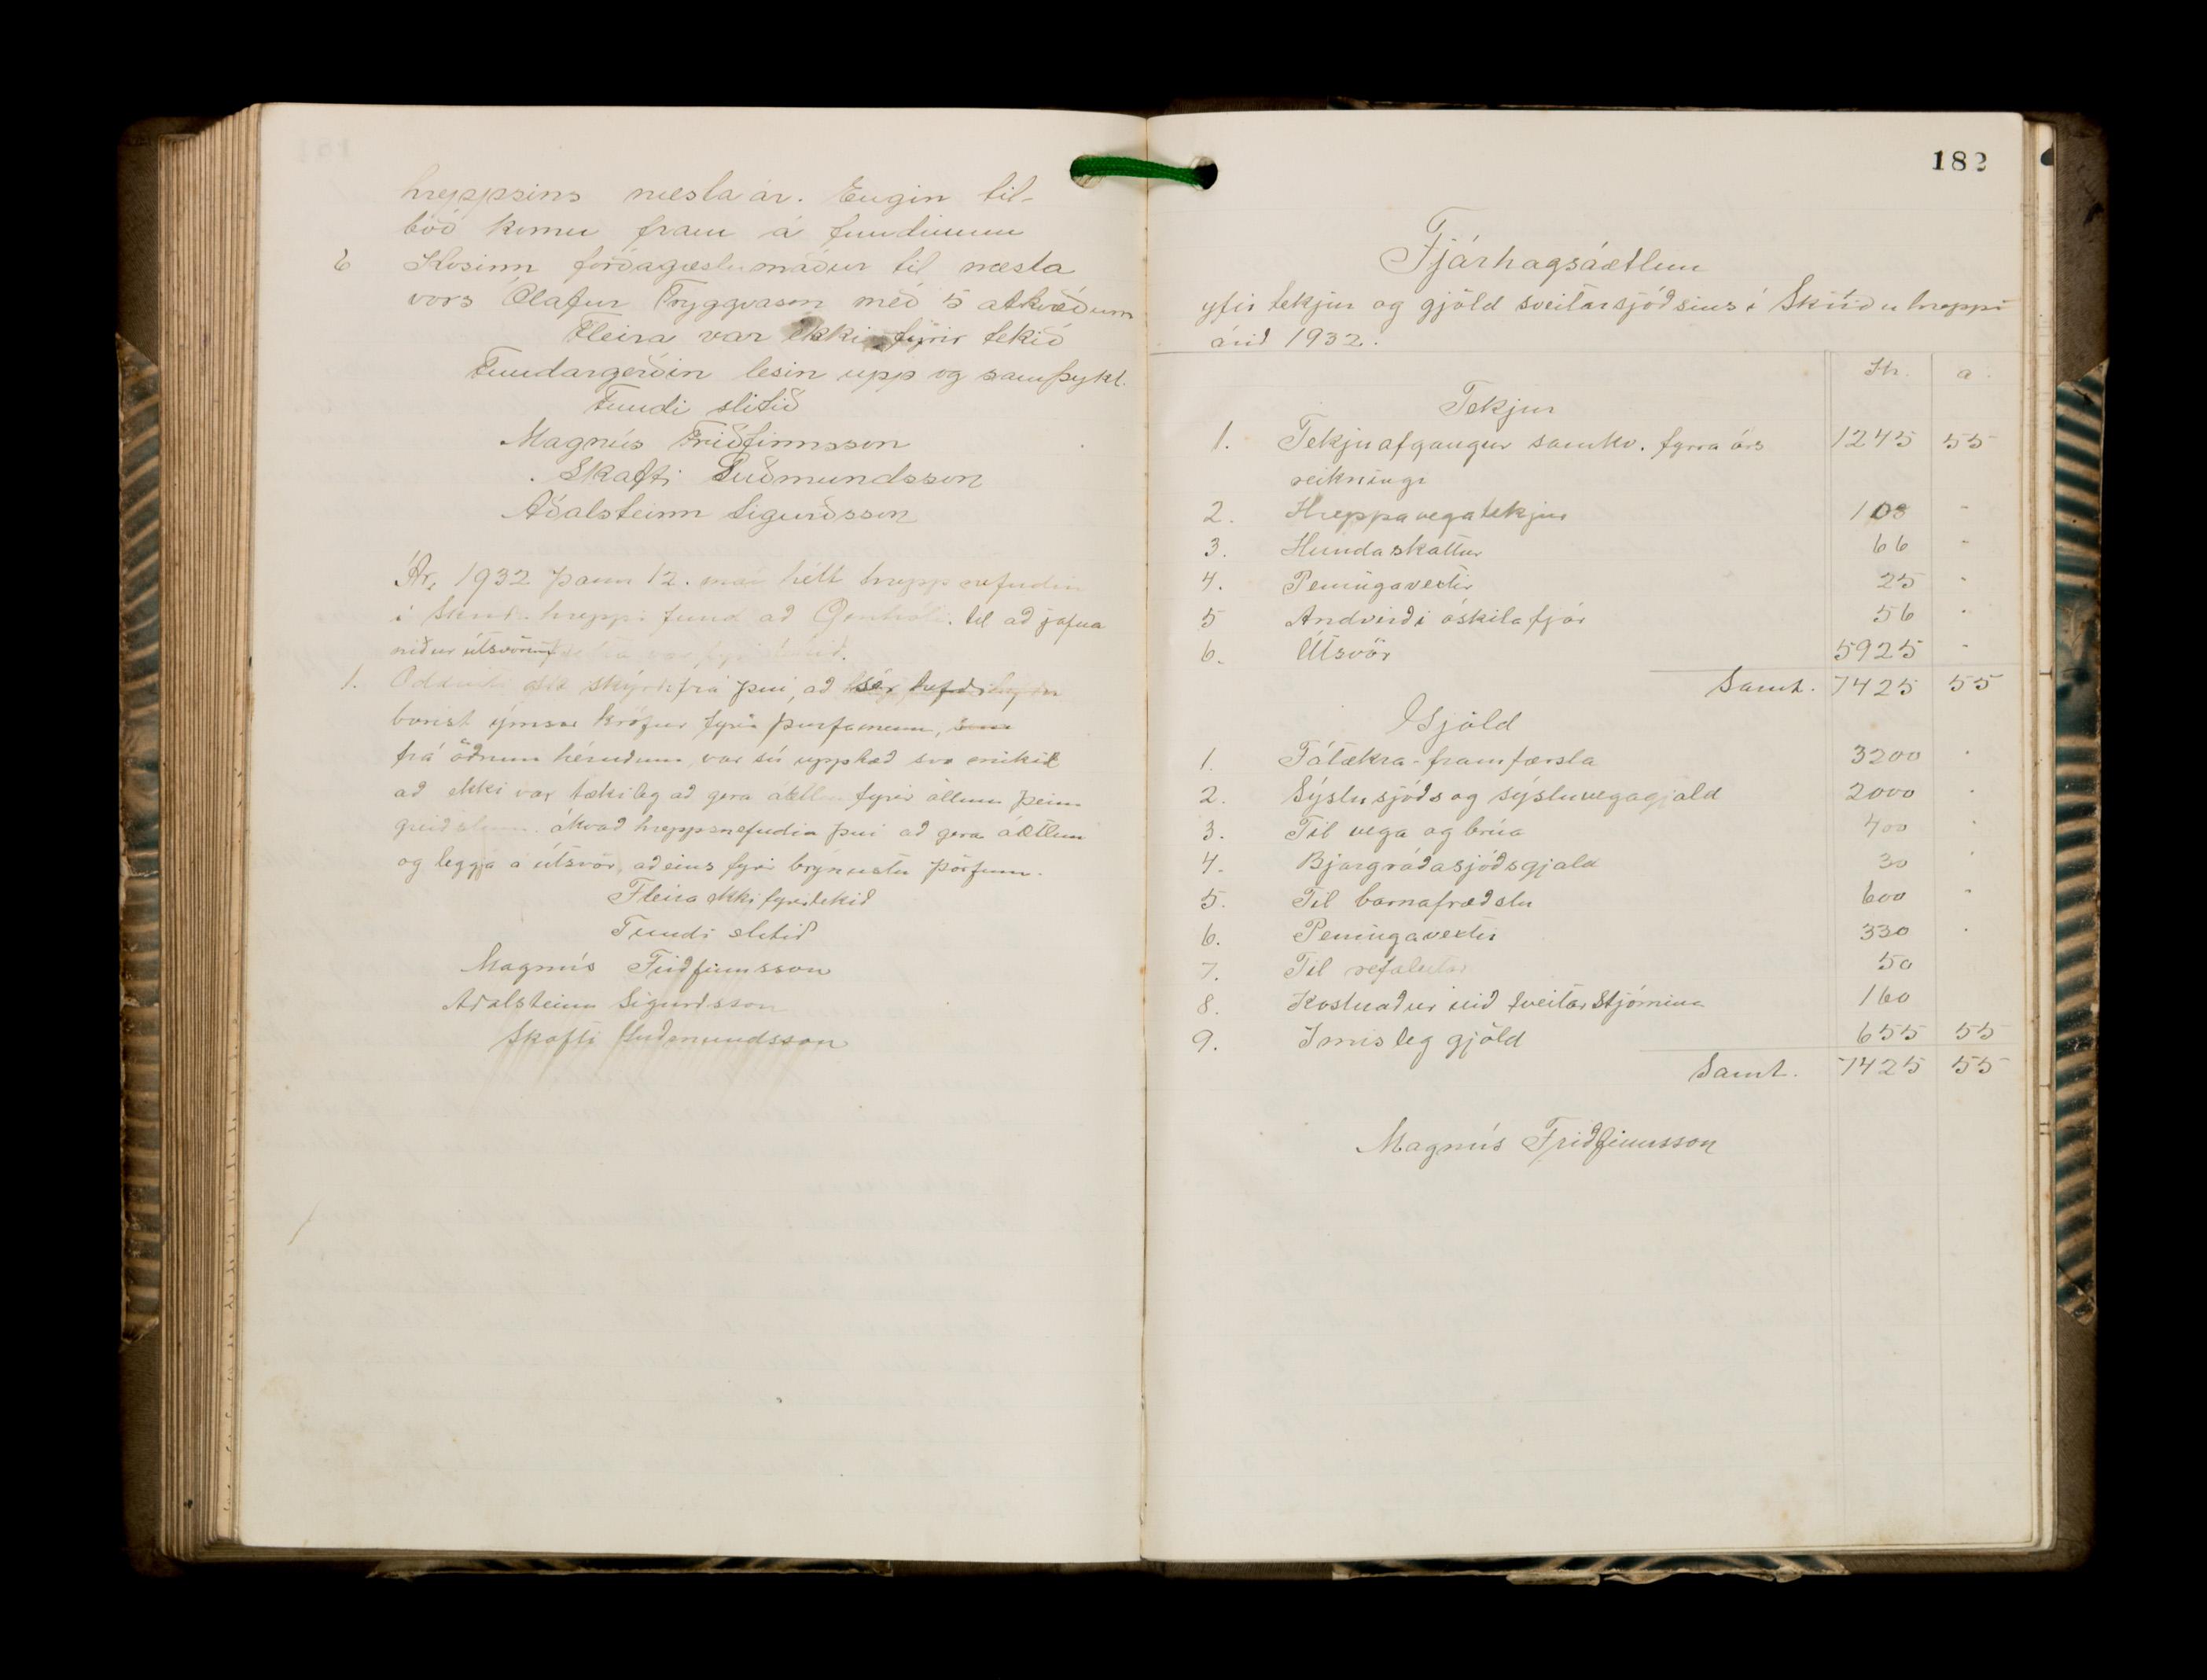 hreppsins næsta ár. Engin til-
boð komu fram á fundinum
6 Kosinn forðagæslumaður til næsta
vors Ólafur Tryggvason með 5 atkvæðum
Fleira var ekki fyrir tekið
Fundargerðin lesin upp og samþykt.
Fundi slitið
Magnús Friðfinnsson
Skafti Guðmundsson
Aðalsteinn Sigurðsson
Ár, 1932 þann 12. maí hélt hreppsnefndin
í hreppi fund að til að jafna
niður útsvörum
1. Oddviti skýrði frá því, að sér hefði
borist ýmsar kröfur fyrir þurfamenn,
frá öðrum héruðum, var sú upphæð svo mikil
að ekki var tækileg að gera áætlun fyrir öllum þeim
greiðslum. ákvað hreppsnefndin því að gera áætlun
og leggja á útsvör, aðeins fyrir brýnustu þörfum.
Fleira ekki fyrirtekið
Fundi slitið
Magnús Friðfinnsson
Aðalsteinn Sigurðsson
Skafti Guðmundsson
182
Fjárhagsáætlun
yfir tekjur og gjöld sveitarsjóðsins í hreppi
árið 1932.
Kr. a.
Tekjur
1. Tekjuafgangur samkv. fyrra árs 1245 55
reikningi
2. Hreppavegatekjur 108 -
3. Hundaskattur 66 -
4. Peningavextir 25 -
5 Andvirði óskilafjár 56 -
6. Útsvör 5925 -
Samt. 7425 55
Gjöld
1. Fátækra-framfærsla 3200 -
2. Sýslusjóðs og sýsluvegagjald 2000 -
3. Til vega og brúa 400 -
4. Bjargráðasjóðsgjald 30 -
5. Til barnafræðslu 600 -
6. Peningavextir 330 -
7. Til 50
8. Kostnaður við sveitarstjórnina 160
9. Ímisleg gjöld 655 55
Samt. 7425 55
Magnús Friðfinnsson